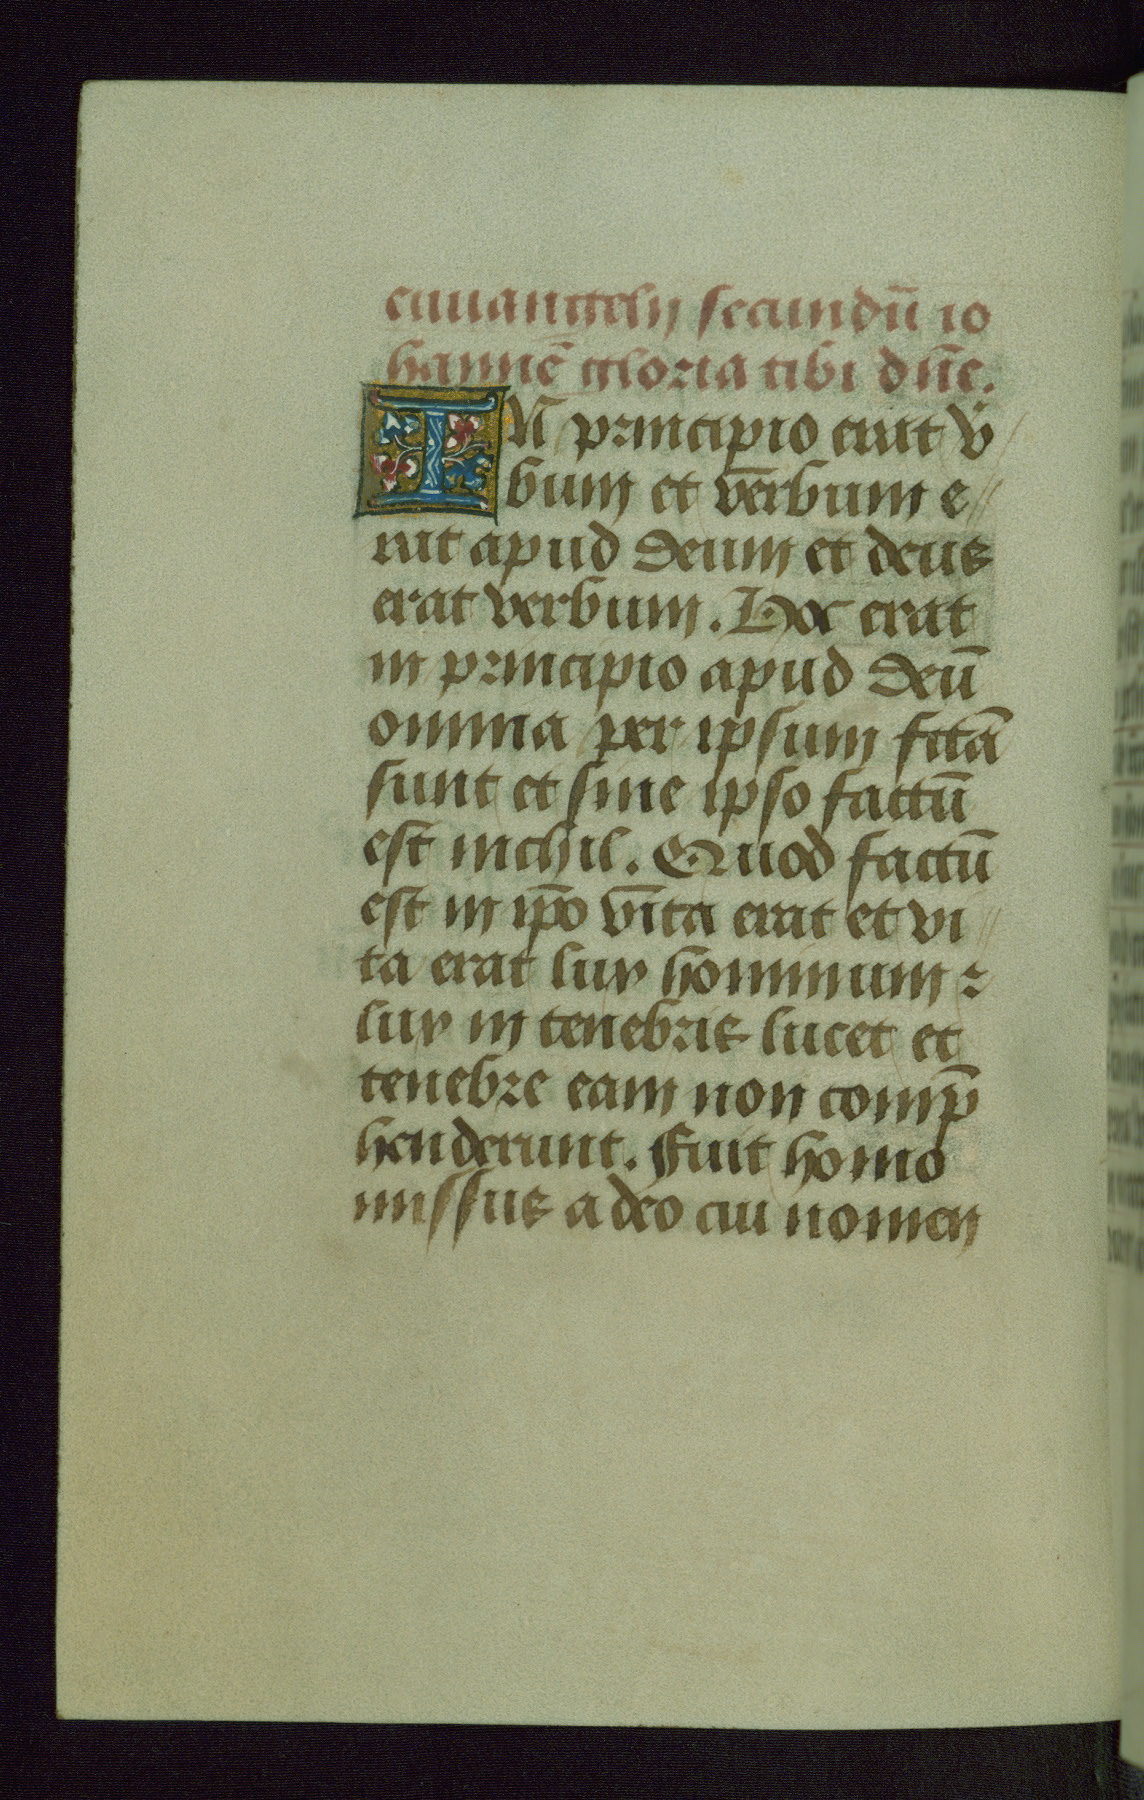 euuangelij secundū io
hannē gloria tibi dn̄e.
IN principio erat v̾
bum et verbum e
rat apud deum et deus
erat verbum. Hoc erat
in principio apud deū
omnia per ipsum fctā
sunt et sine ipso factū
est nichil. Quod factū
est in ip̄o vita erat et vi
ta erat lux hominum ⁊
lux in tenebris lucet et
tenebre eam non comp̄
henderunt. Fuit homo
missus a deo cui nomen